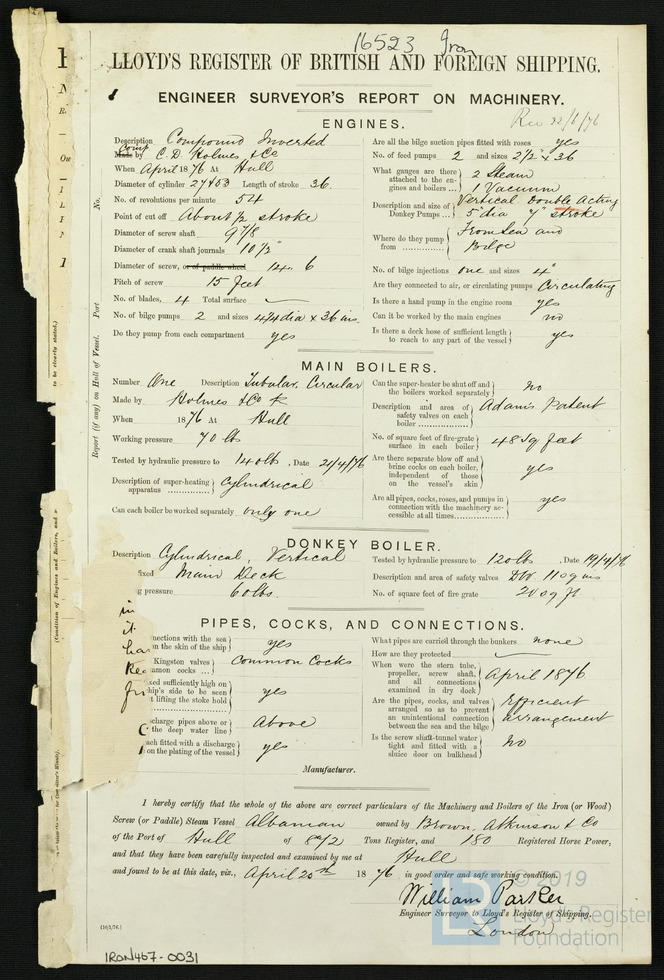 16523 Iron
LLOYD'S REGISTER OF BRITISH AND FOREIGN SHIPPING.
ENGINEER SURVEYOR'S REPORT ON MACHINERY.
Rec 22/6/76
ENGINES.
Description Compound Inverted
Comp
Made by C. D. Holmes & Co
When April 1876 At Hull
Diameter of cylinder 27 & 53 Length of stroke 36
No. of revolutions per minute 54
Point of cut off About ½ stroke
Diameter of screw shaft 9 7/8
Diameter of crank shaft journals 10 ½"
Diameter of screw, or of paddle wheel 14 . 6
Pitch of screw 15 feet
No. of blades, 4 Total surface
No. of bilge pumps 2 and sizes 4¼ dia x 36 ins
Do they pump from each compartment yes
Are all the bilge suction pipes fitted with roses yes
No. of feed pumps 2 and sizes 2½" x 36
What gauges are there attached to the engines and boilers ... 2 Steam
1 Vacuum
Description and size of Donkey Pumps ... Vertical Double Acting
5" dia stroke
Where do they pump from From Sea and
Bilge
No. of bilge injections one and sizes 4"
Are they connected to air, or circulating pumps Circulating
Is there a hand pump in the engine room yes
Can it be worked by the main engines no
Is there a deck hose of sufficient length to reach to any part of the vessel yes
MAIN BOILERS.
Number One Description Tubular, Circular
Made by Holmes & Co
When 1876 At Hull
Working pressure 70 lbs
Tested by hydraulic pressure to 140 lbs, Date 21/4/76
Description of super-heating apparatus Cylindrical
Can each boiler be worked separately only one
Can the super-heater be shut off and the boilers worked separately no
Description and area of safety valves on each boiler Adams Patent
No. of square feet of fire-grate surface in each boiler 48 sq feet
Are there separate blow off and brine cocks on each boiler, independent of those on the vessel's skin yes
Are all pipes, cocks, roses, and pumps in connection with the machinery accessible at all times yes
DONKEY BOILER.
Description Cylindrical, Vertical
fixed Main Deck
pressure 60 lbs.
Tested by hydraulic pressure to 120 lbs, Date 19/4/76
Description and area of safety valves
No. of square feet of fire grate 20 sq ft
PIPES, COCKS, AND CONNECTIONS.
in
it
ha
nections with the sea
n the skin of the ship yes
Kingston valves
mon cocks ... Common Cocks
xed sufficiently high on
hip's side to be seen
t lifting the stoke hold yes
scharge pipes above or
the deep water line Above
ach fitted with a discharge
on the plating of the vessel yes
What pipes are carried through the bunkers none
How are they protected
When were the stern tube, propeller, screw shaft, and all connections examined in dry dock April 1876
Are the pipes, cocks, and valves arranged so as to prevent an unintentional connection between the sea and the bilge Efficient
arrangement
Is the screw shaft-tunnel water tight and fitted with a sluice door on bulkhead No
Manufacturer.
I hereby certify that the whole of the above are correct particulars of the Machinery and Boilers of the Iron (or Wood)
Screw (or Paddle) Steam Vessel Albanian owned by Brown, Atkinson & Co
of the Port of Hull of Tons Register, and 180 Registered Horse Power,
and that they have been carefully inspected and examined by me at Hull
and found to be at this date, viz., April 25th 1876 in good order and safe working condition.
William Parker
Engineer Surveyor to Lloyd's Register of Shipping.
London
(10/3/76.)
IRON467-0031
© 2019
Lloyd's Register
Foundation
No.
Port
Report (if any) on Hull of Vessel.
to be clearly stated.)
(Condition of Engines and Boilers, and